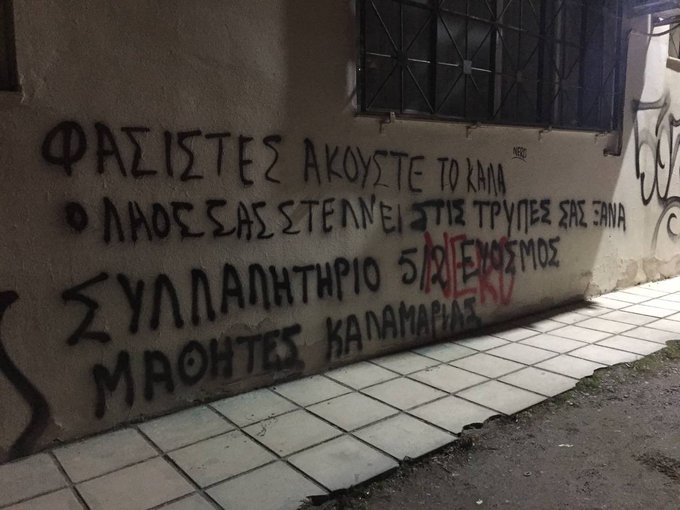 ΦΑΣΙΣΤΕΣ ΑΚΟΥΣΤΕ ΤΟ ΚΑΛΑ
Ο ΛΑΟΣ ΣΑΣ ΣΤΕΛΝΕΙ ΣΤΙΣ ΤΡΥΠΕΣ ΣΑΣ ΞΑΝΑ
ΣΥΛΛΑΛΗΤΗΡΙΟ 5/2 ΕΥΟΣΜΟΣ
ΜΑΘΗΤΕΣ ΚΑΛΑΜΑΡΙΑΣ